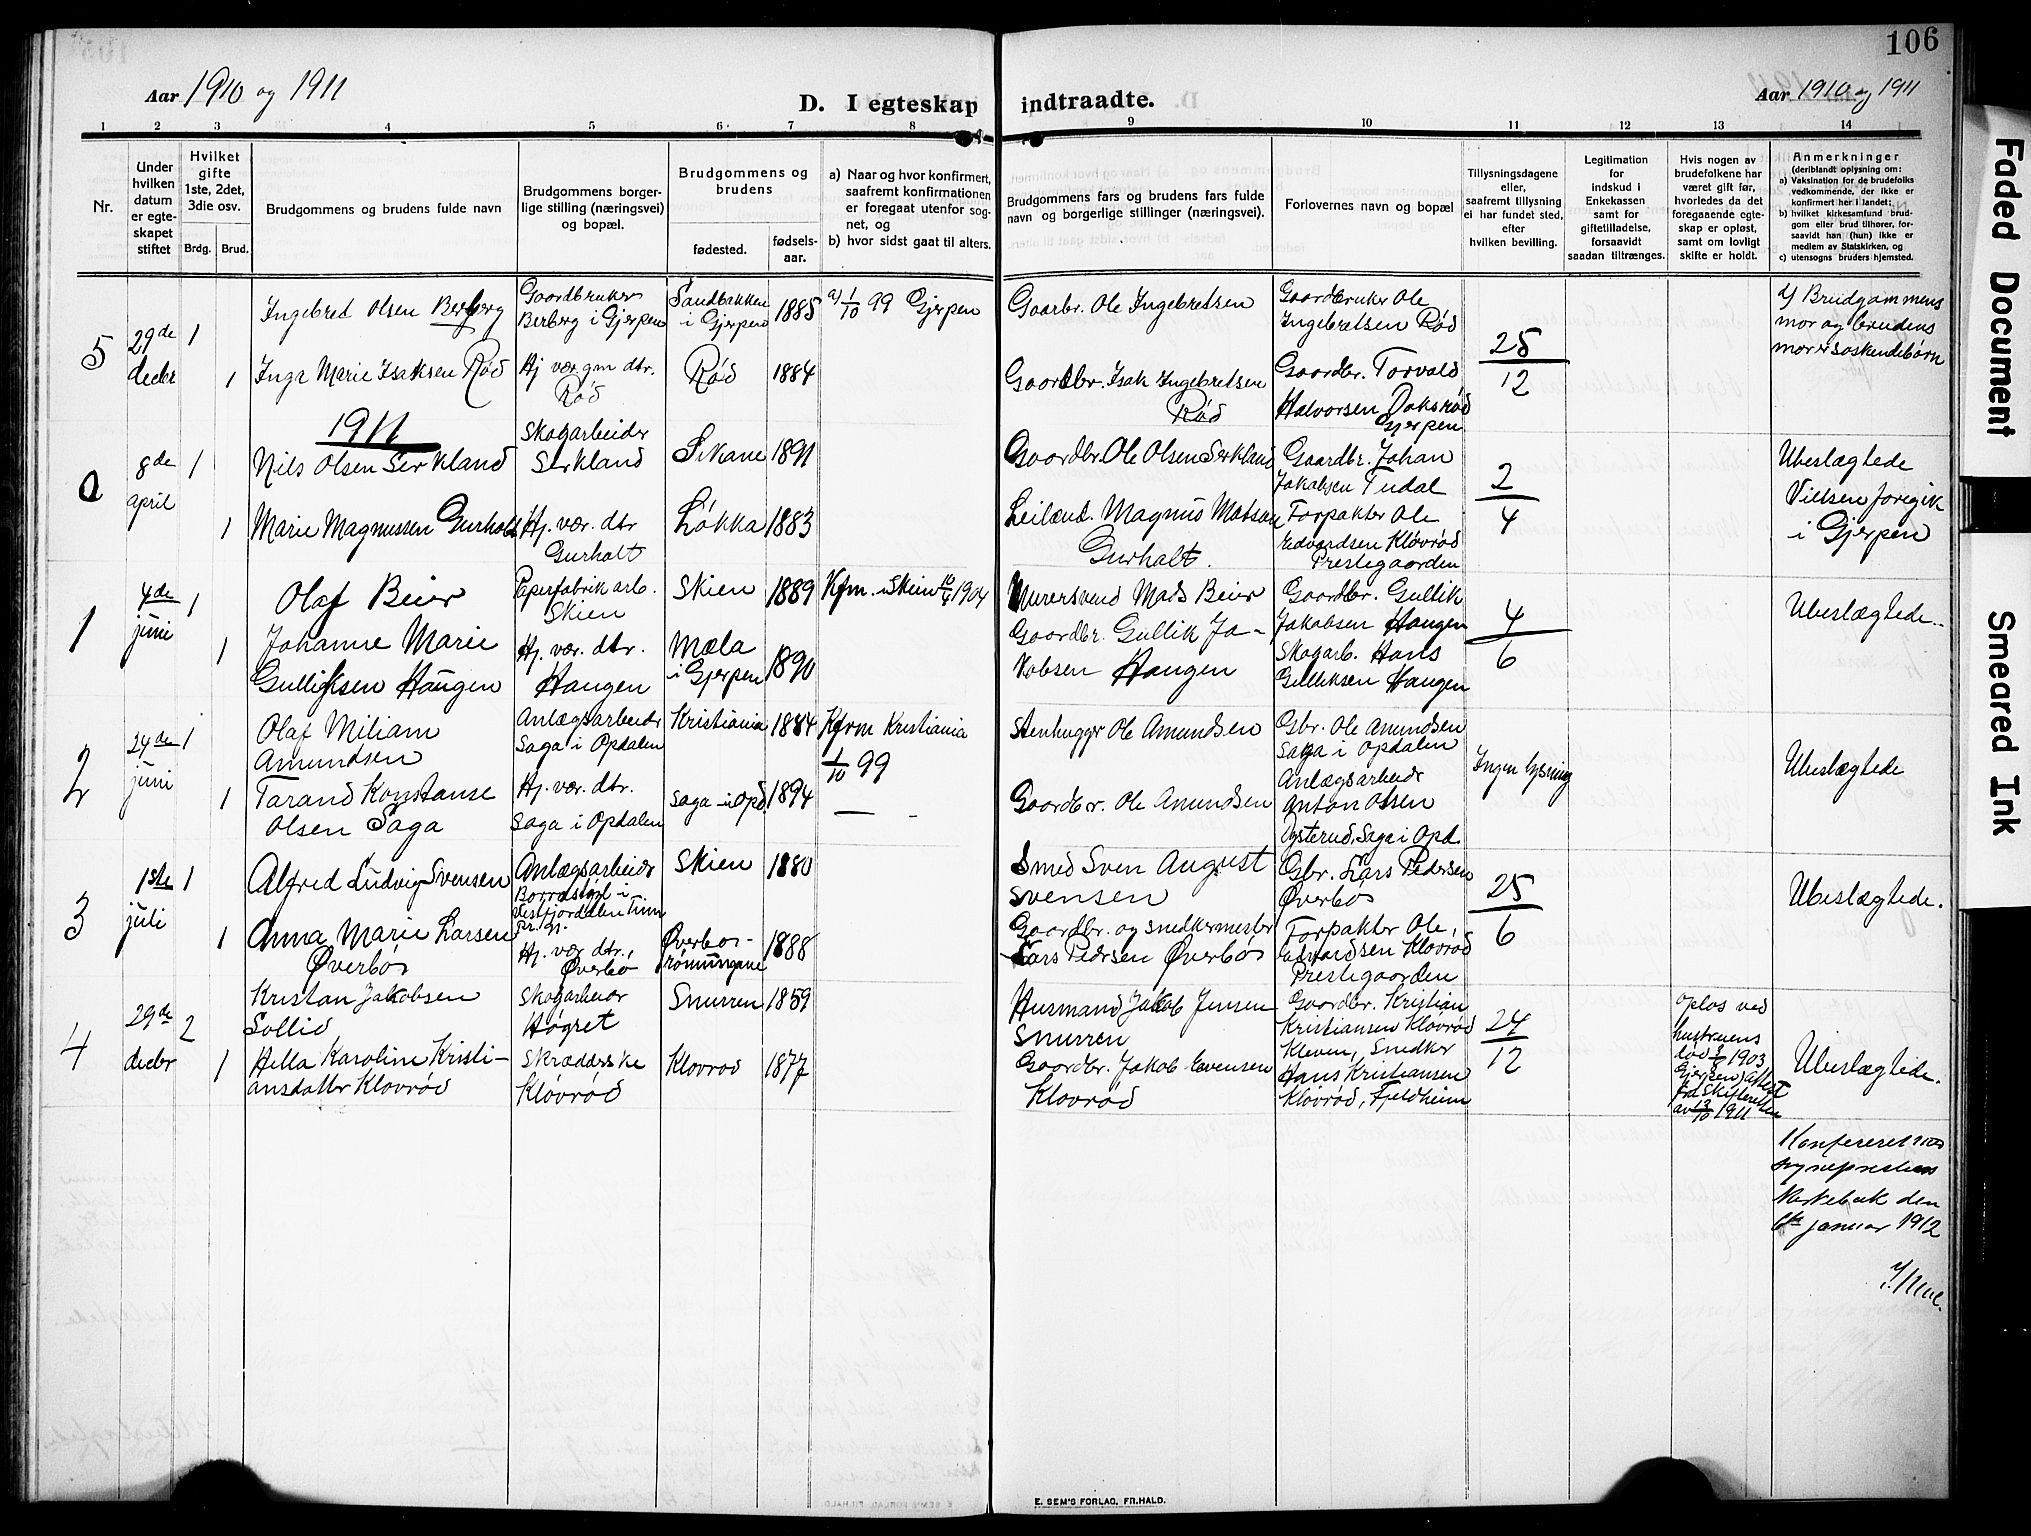 106
Aar 1910 og 1911
D. I egteskap indtraadte.
Aar 1910 og 1911
1 2 3 4 5 6 7 8 9 10 11 12 13 14
Nr.
Under hvilken datum er egteskapet stiftet
Hvilket gifte 1ste, 2det, 3die osv.
Brdg. Brud.
Brudgommens og brudens fulde navn
Brudgommens borgerlige stilling (næringsvei) og bopæl.
Brudgommens og brudens
fødested.
fødselsaar.
a) Naar og hvor konfirmert, saafremt konfirmationen er foregaat utenfor sognet, og
b) hvor sidst gaat til alters.
Brudgommens og brudens fars fulde navn og borgerlige stillinger (næringsvei).
Forlovernes navn og bopæl
Tillysningsdagene eller, saafremt tillysning ei har fundet sted, efter hvilken bevilling.
Legitimation for indskud i Enkekassen samt for giftetilladelse, forsaavidt saadan tiltrænges.
Hvis nogen av brudefolkene har været gift før, hvorledes da det foregaaende egteskap er opløst, samt om lovligt skifte er holdt.
Anmerkninger
(deriblandt oplysning om:
a) Vaksination for de brudefolks vedkommende, der ikke er konfirmert her i landet;
b) hvilket kirkesamfund brudgom eller brud tilhører, forsaavidt han (hun) ikke er medlem av Statskirken, og
c) utensogns bruders hjemsted.
5
29de decbr
1
Ingebret Olsen Berberg
Gaardbruker
Berberg i Gjerpen
Sandbakken
i Gjerpen
1885
a) 1/10 99 Gjerpen
Gaarbr. Ole Ingebretsen
Gaardbruker Ole
Ingebretsen Rød
25/12
Brudgommens
mor og brudens
mor er søskendebørn
1
Inga Marie Isaksen Rød
Hj. vær. gm dtr.
Rød
Rød
1884
Gaardbr. Isak Ingebretsen
Rød
Gaardbr. Torvald
Halvorsen
Gjerpen
1911
8de april
1
Nils Olsen Serkland
Skogarbeider
Serkland
1891
Gaardbr. Ole Olsen Serkland
Gaardbr. Johan
Jakobsen Tudal
2/4
Ubeslægtede
Vielsen foregik
i Gjerpen
1
Marie Magnussen Gurholt
Hj. vær. dtr
Gurholt
Løkka
1883
Leilænd. Magnus Matson
Gurholt.
Forpakter Ole
Edvardsen Kløvrød
Prestegaarden
1
4de juni
1
Olaf Beier
Paperfabrik arb.
Skien
Skien
1889
Kfm. i Skien 16/4 1904
Murersvend Mads Beier
Gaardbr. Gullik
Jakobsen Haugen
4/6
Ubeslægtede.
1
Johanne Marie
Gulliksen Haugen
Hj. vær. dtr.
Haugen
Mæla
i Gjerpen
1890
Gaardbr. Gullik Ja-
kobsen Haugen
Skogarb. Hans
Gulliksen Haugen
2
24de juni
1
Olaf Miliam
Amundsen
Anlægsarbeidr
Saga i Opdalen
Kristiania
1884
Kfrm Kristiania
1/10 99
Stenhugger Ole Amundsen
Gbr. Ole Amundsen
Saga i Opdalen
Ingen lysning
Ubeslægtede
1
Tarand Konstanse
Olsen Saga
Hj. vær. dtr.
Saga i Opdalen
Saga i Opd.
1894
Gaardbr. Ole Amundsen
Anlægsarbeidr
Anton Olsen
Øysterud, Saga i Opd.
3
1ste juli
1
Alfred Ludvig Svensen
Anlægsarbeidr
Vestfjordalen Tinn
Skien
1880
Smed Sven August
Svensen
Gbr. Lars Pedersen
Øverbø
25/6
Ubeslægtede.
1
Anna Marie Larsen
Øverbø
Hj. vær dtr.,
Øverbø
Øverbø-
1888
Gaardbr. og snedkermester
Lars Pedersen Øverbø
Forpakter Ole
Edvardsen Kløvrød
Prestegaarden
4
29de decbr
2
Kristan Jakobsen
Sollid
Skogarbeidr
Høgset
Snurren
1859
Husmand Jakob Jensen
Snurren
Gaardbr. Kristian
Kristiansen Kløvrød
Kleven, Snedker
24/12
opløs ved
hustruens
død 1903
Gjerpen, attest
fra Skifteretten
av 13/10 1911
Ubeslægtede.
1
Hella Karoline Kristi-
ansdatter Klovrød
Skrædderske
Kløvrød
Klovrod
1877
Gaardbr. Jakob Evensen
Klovrød
Hans Kristiansen
Klovrød, Fjeldheim
Konfereret med
sogneprestens
kirkebok den
6te januar 1912
E. SEM'S FORLAG, FR.HALD.
Faded Document
Smeared Ink